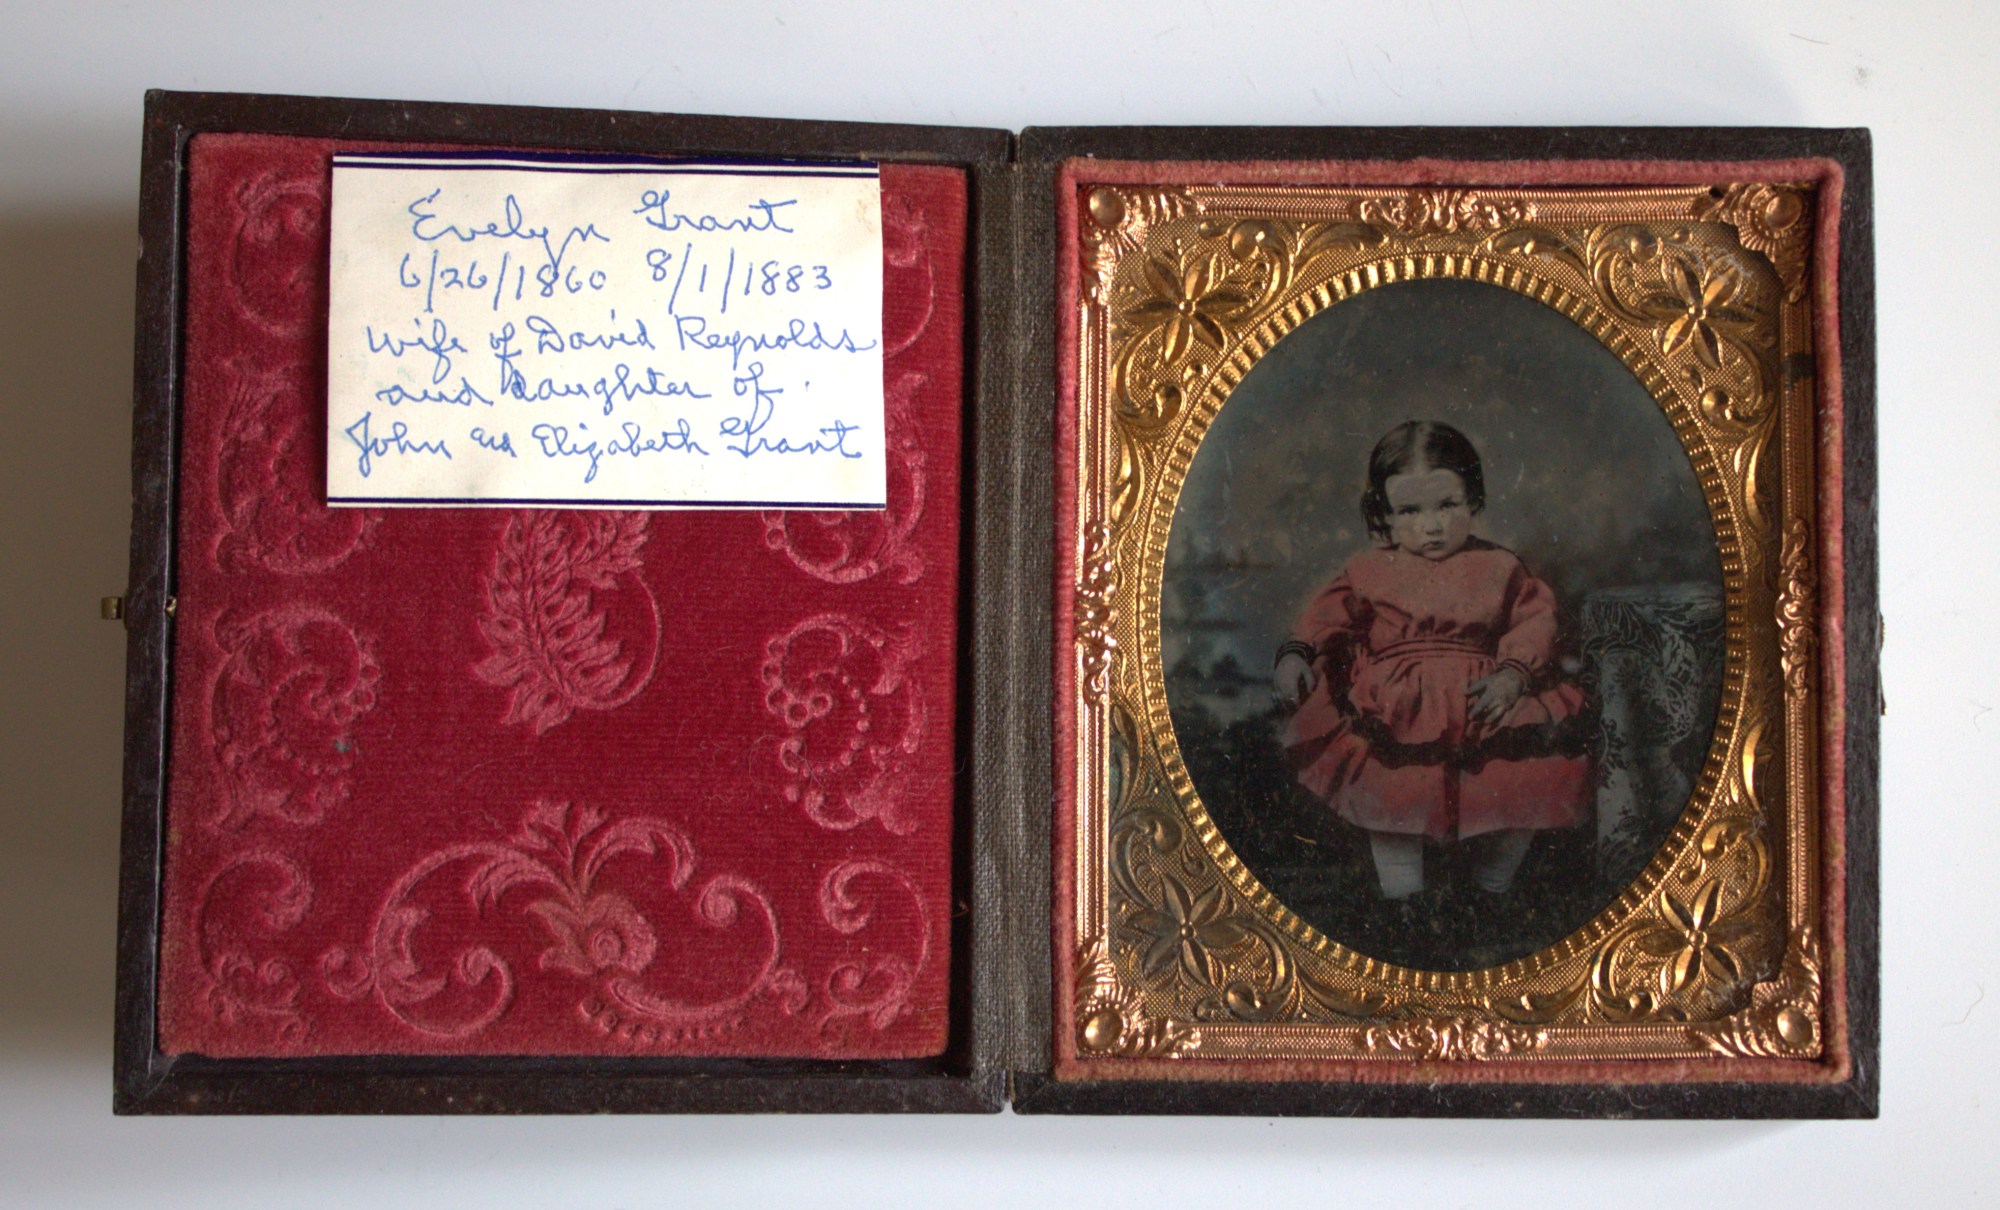 Evelyn Grant
6/26/1860 8/1/1883
wife of David Reynolds
and daughter of
John and Elizabeth Grant